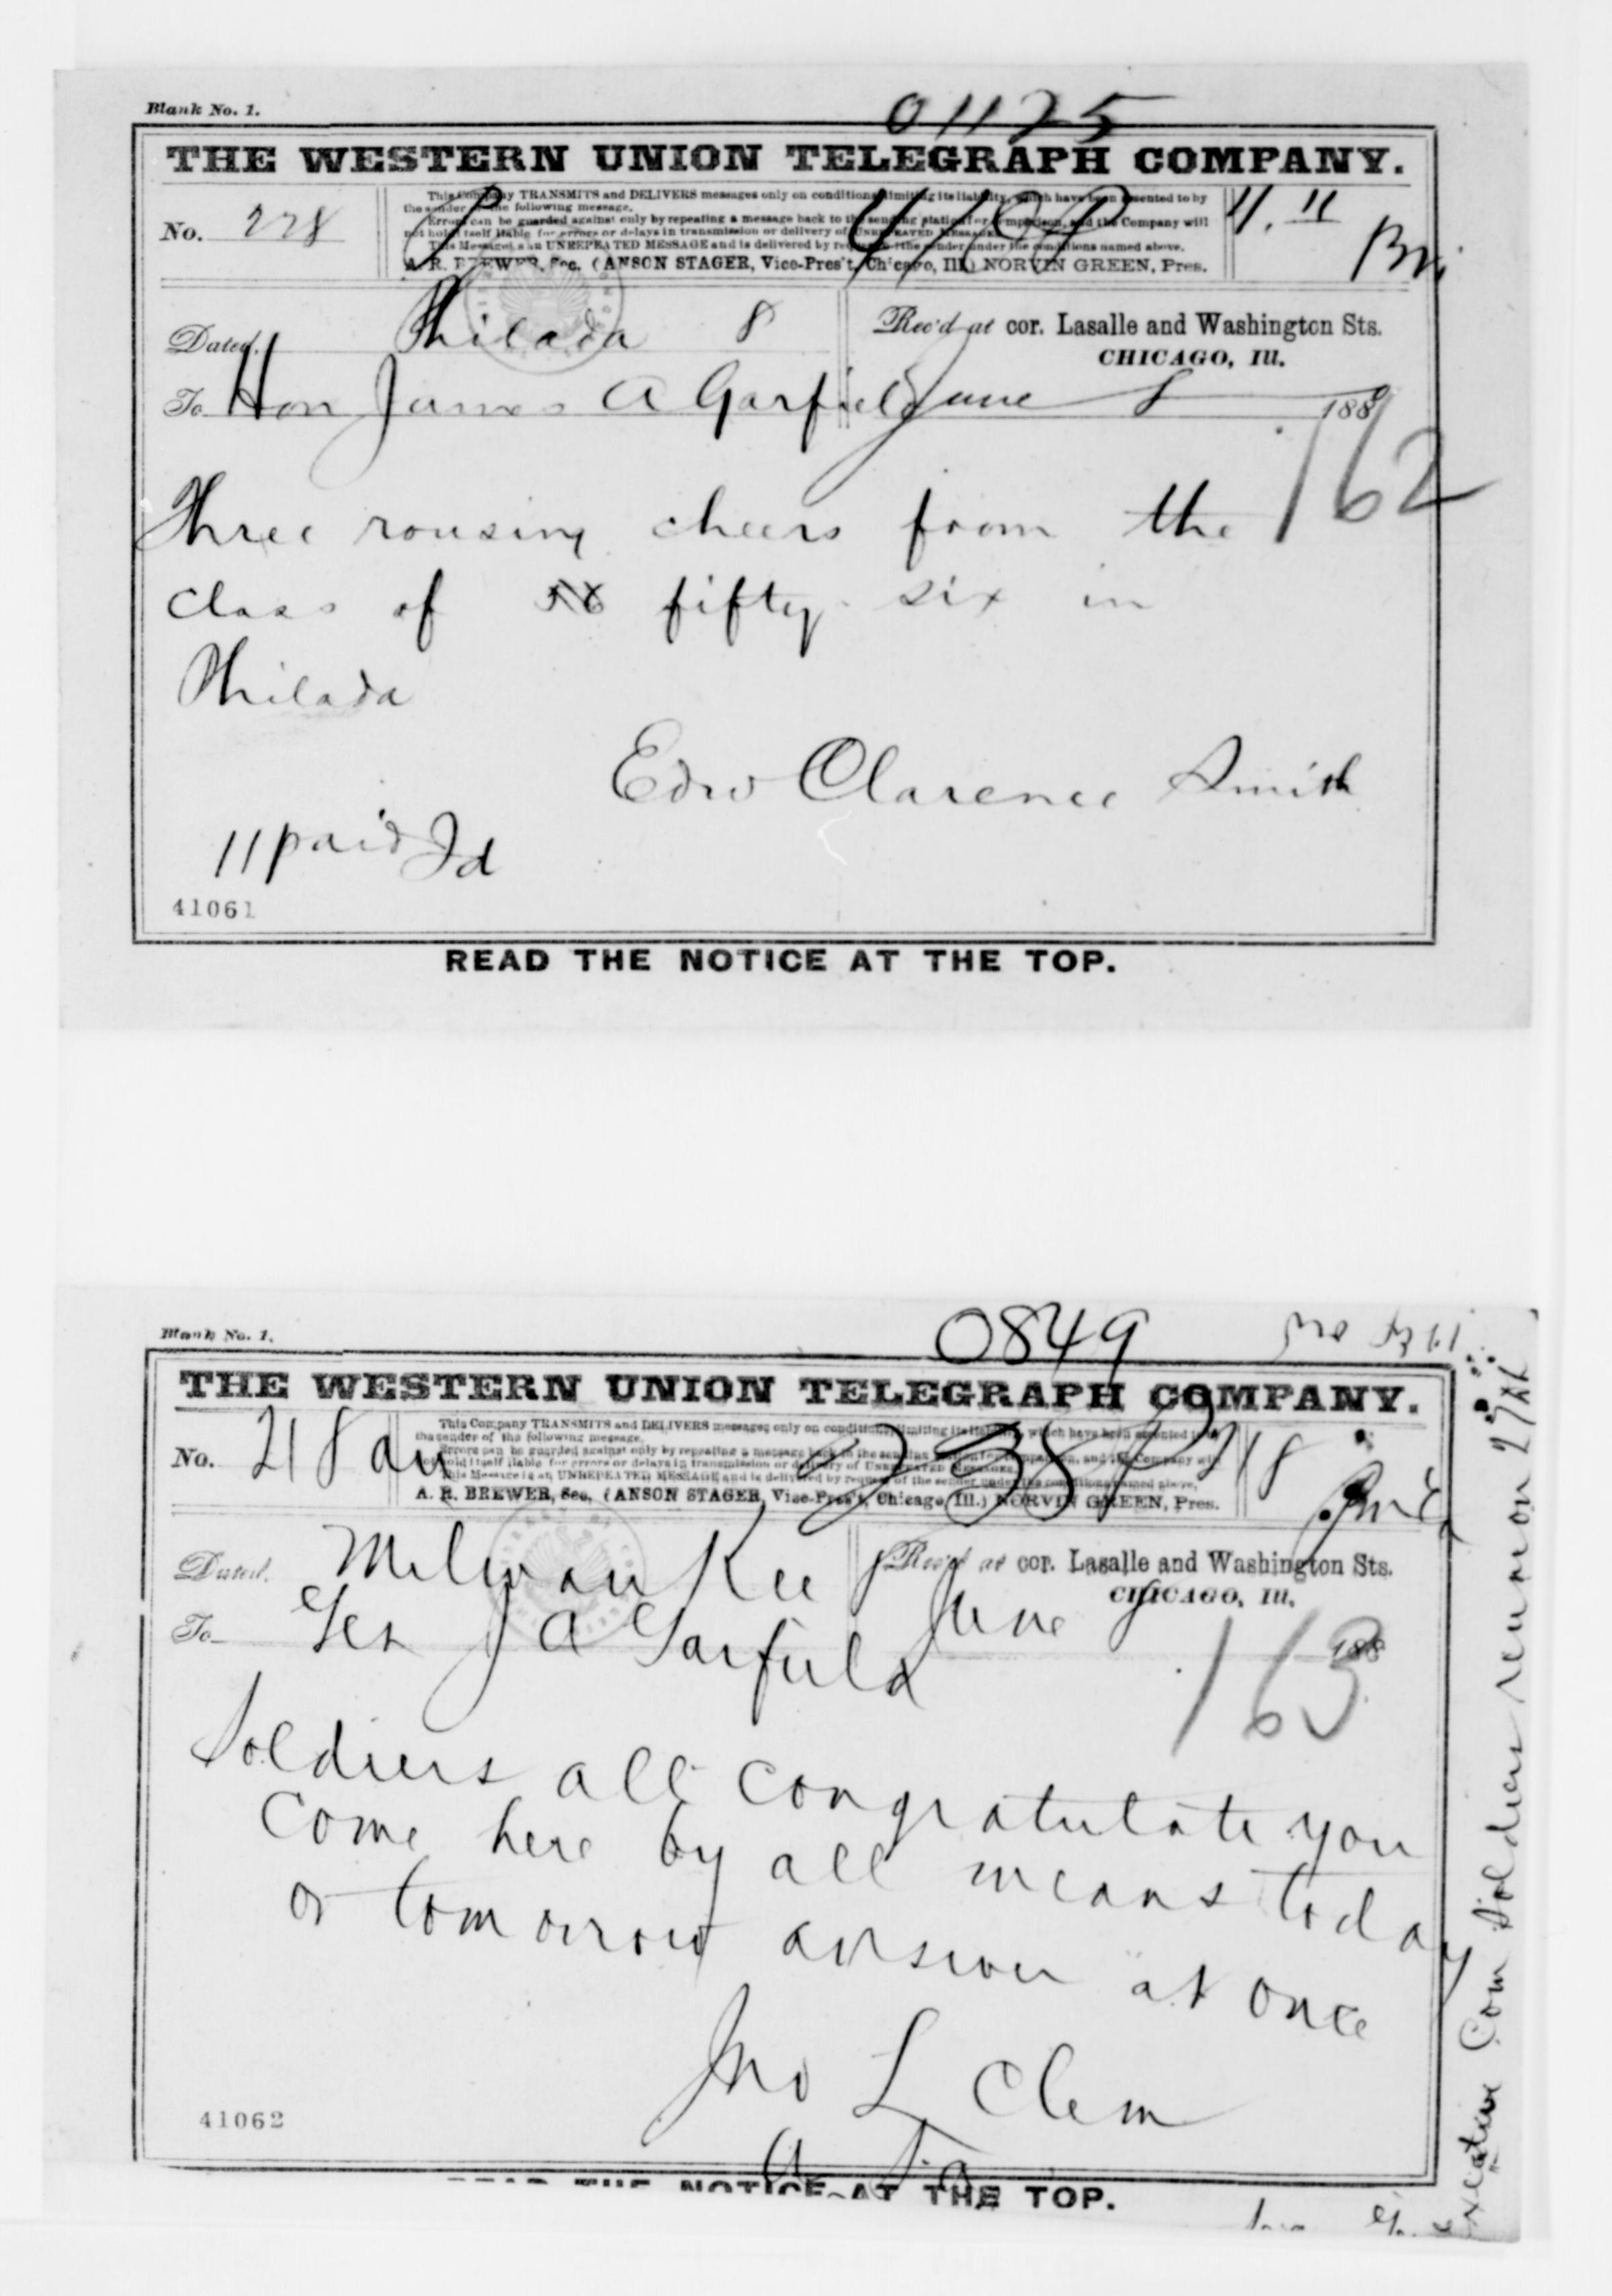 Blank No. 1.
01125
THE WESTERN UNION TELEGRAPH COMPANY.
No. 228
This Company TRANSMITS and DELIVERS messages only on conditions limiting its liability, which have been assented to by
the sender of the following message.
Errors can be guarded against only by repeating a message back to the sending station for comparison, and the Company will
not hold itself liable for errors or delays in transmission or delivery of UNREPEATED MESSAGES
This Message is an UNREPEATED MESSAGE and is delivered by request of the sender under the conditions named above.
A. R. BREWER, Sec. (ANSON STAGER, Vice-Pres't, Chicago, Ill.) NORVIN GREEN, Pres.
Dated. Philada 8
Rec'd at cor. Lasalle and Washington Sts.
CHICAGO, Ill.
To Hon James A Garfield June 8 1880
162
Three rousing cheers from the
class of fifty six in
Philada
Edw Clarence Smith
11 paid Jd
41061
READ THE NOTICE AT THE TOP.
Blank No. 1.
0849
THE WESTERN UNION TELEGRAPH COMPANY.
No. 218
This Company TRANSMITS and DELIVERS messages only on conditions limiting its liability, which have been assented to by
the sender of the following message.
Errors can be guarded against only by repeating a message back to the sending station for comparison, and the Company will
not hold itself liable for errors or delays in transmission or delivery of UNREPEATED MESSAGES
This Message is an UNREPEATED MESSAGE and is delivered by request of the sender under the conditions named above.
A. R. BREWER, Sec. (ANSON STAGER, Vice-Pres't, Chicago, Ill.) NORVIN GREEN, Pres.
Dated. Milwaukee 8
Rec'd at cor. Lasalle and Washington Sts.
CHICAGO, Ill.
To Gen J A Garfield June 8 188
163
Soldiers all congratulate you
Come here by all means today
or tomorrow answer at once
Jno L Clem
41062
READ THE NOTICE AT THE TOP.
Executive Com Soldiers reunion